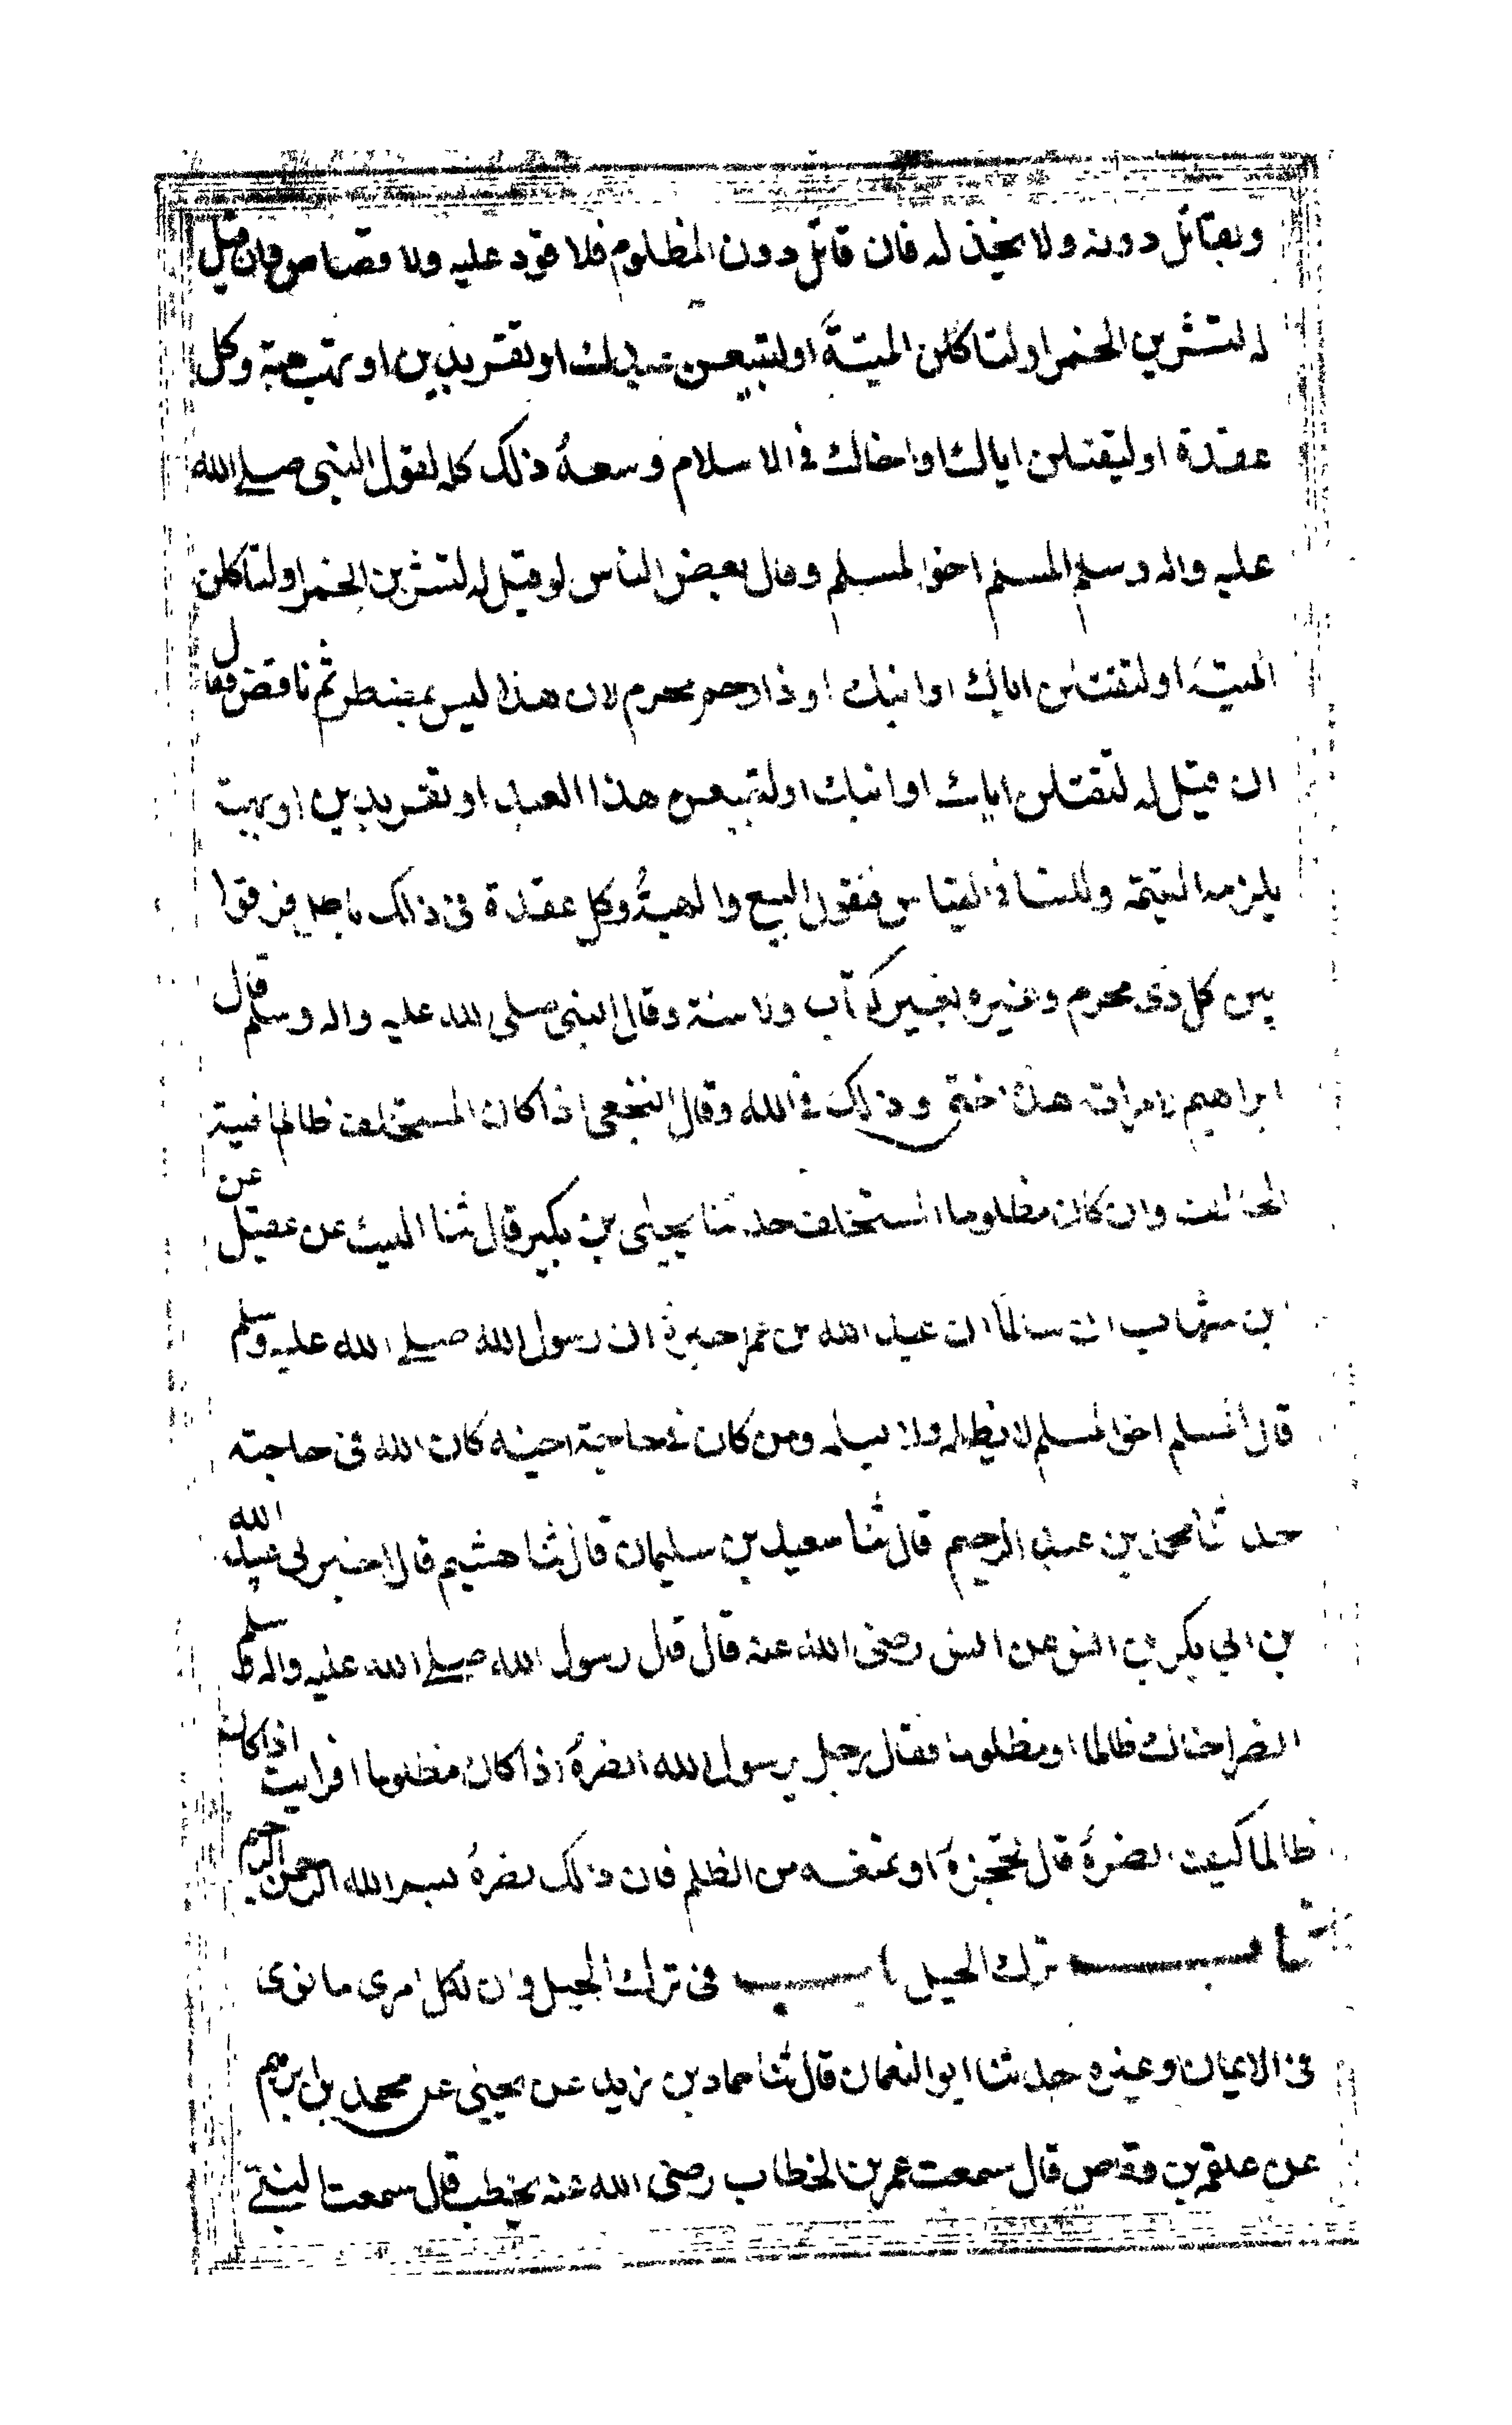 ويقاتل دونه ولا يخذله فان قاتل دون المظلوم فلا قود عليه ولا قصاص وان قيل
له لتشربن الخمر او لتاكلن الميتة او لتبيعن عبدك او تقر بدين او تهب هبة وكل
عقدة او ليقتلن اباك او اخاك في الاسلام وسعه ذلك كله لقول النبي صلى الله
عليه واله وسلم المسلم اخو المسلم وقال بعض الناس لو قيل له لتشربن الخمر او لتاكلن
الميتة او لتقتلن اباك او ابنك او ذا رحم محرم لان هذا ليس بمضطر ثم ناقض فقال
ان قيل له لتقتلن اباك او ابنك او لتبيعن هذا العبد او تقر بدين او بهبة
يلزمه القياس فنقول البيع والهبة وكل عقدة في ذلك باطل فرقوا
بين كل ذي محرم وغيره بغير كتاب ولا سنة وقال النبي صلى الله عليه واله وسلم قال
ابراهيم لامراته هذه اختي وذلك في الله وقال النخعي اذا كان المستحلف ظالما فنية
الحالف وان كان مظلوما المستحلف حدثنا يحيى بن بكير قال ثنا الليث عن عقيل عن
بن شهاب ان سالما ان عبد الله بن عمر اخبره ان رسول الله صلى الله عليه وسلم
قال المسلم اخو المسلم لا يظلمه ولا يسلمه ومن كان في حاجة اخيه كان الله في حاجته
حدثنا محمد بن عبد الرحيم قال ثنا سعيد بن سليمان قال ثنا هشيم قال اخبرني عبيد الله
بن ابي بكر بن انس عن انس رضي الله عنه قال قال رسول الله صلى الله عليه واله وسلم
انصر اخاك ظالما او مظلوما فقال رجل يرسول الله انصره اذا كان مظلوما افرايت اذا كان
ظالما كيف نصره قال تحجزه او تمنعه من الظلم فان ذلك نصره بسم الله الرحمن الرحيم
ترك الحيل باب في ترك الحيل وان لكل امرى ما نوى
في الايمان وغيره حدثنا ابو النعمان قال ثنا حماد بن زيد عن يحيى عن محمد بن ابرهيم
عن علقمه بن وقاص قال سمعت عمر بن الخطاب رضي الله عنه يخطب قال سمعت النبي